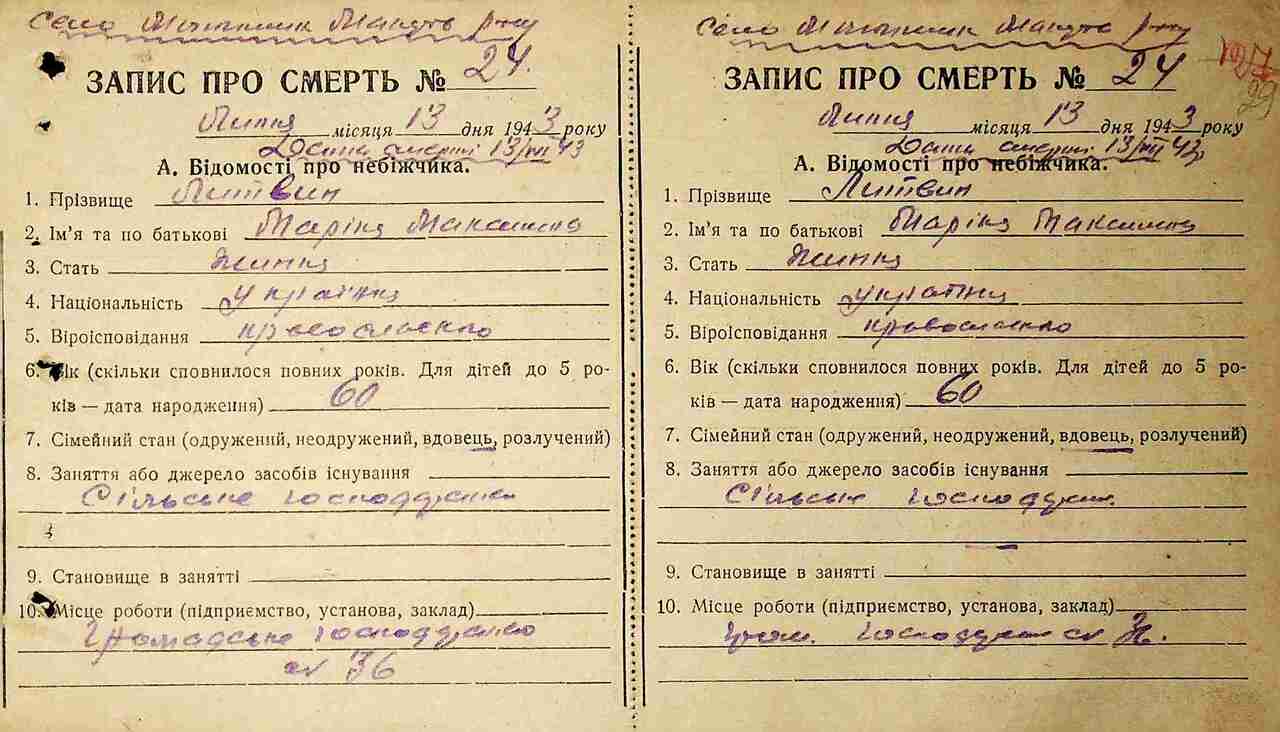 Село
ЗАПИС ПРО СМЕРТЬ № 24.
Липня місяця 13 дня 1943 року
Дата смерті 13/VII 43
А. Відомості про небіжчика.
1. Прізвище Литвин
2. Ім'я та по батькові Маріна Максимівна
3. Стать Жінка
4. Національність Українка
5. Віроісповідання православна
6. Вік (скільки сповнилося повних років. Для дітей до 5 ро-
ків — дата народження) 60
7. Сімейний стан (одружений, неодружений, вдовець, розлучений)
8. Заняття або джерело засобів існування
Сільське господарство
9. Становище в занятті
10. Місце роботи (підприємство, установа, заклад)
Громадське господарство
№ 36
Село
127
29
ЗАПИС ПРО СМЕРТЬ № 24
Липня місяця 13 дня 1943 року
Дата смерті 13/VII 43р
А. Відомості про небіжчика.
1. Прізвище Литвин
2. Ім'я та по батькові Маріна Максимівна
3. Стать Жінка
4. Національність Українка
5. Віроісповідання православна
6. Вік (скільки сповнилося повних років. Для дітей до 5 ро-
ків — дата народження) 60
7. Сімейний стан (одружений, неодружений, вдовець, розлучений)
8. Заняття або джерело засобів існування
Сільське господар.
9. Становище в занятті
10. Місце роботи (підприємство, установа, заклад)
Гром. господар № 36.